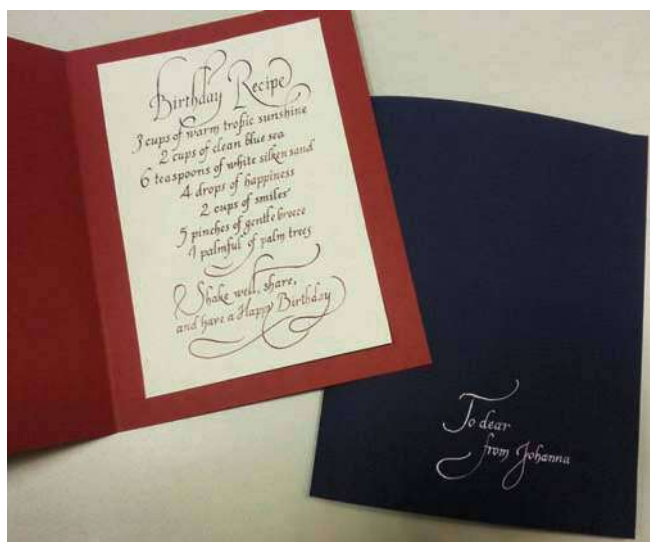 Birthday Recipe
3 cups of warm tropic sunshine
2 cups of clean blue sea
6 teaspoons of white silken sand
4 drops of happiness
2 cups of smiles
5 pinches of gentle breeze
1 palmful of palm trees
Shake well, share,
and have a Happy Birthday
To dear
from Johanna